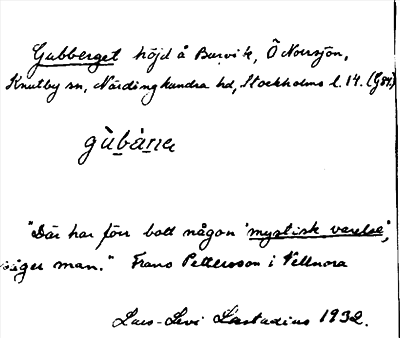 Gubberget höjd å Burvik, Ö Norrsjön,
Knutby sn, Närdinghundra hd, Stockholms l. 14. (G84)
gùbàrra
"Där har förr bott någon 'mystisk varelse',
säger man." Frans Pettersson i Vellnora
Lars-Levi Læstadius 1932.